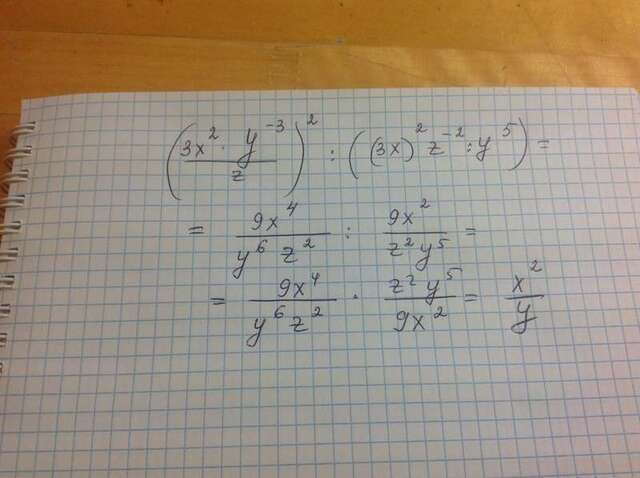 (3x² · y⁻³ / z)² : ((3x)² z⁻² : y⁵) =
= 9x⁴ / y⁶ z² : 9x² / z² y⁵ =
= 9x⁴ / y⁶ z² · z² y⁵ / 9x² = x² / y